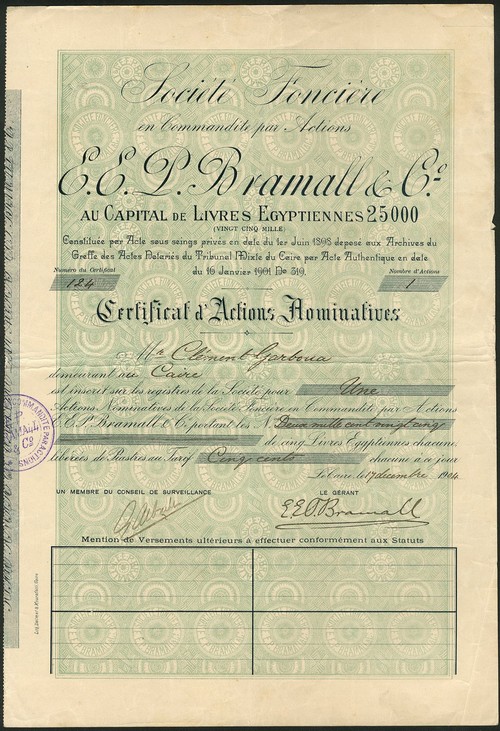 Société Foncière
en Commandite par Actions
E. E. P. Bramall & Co.
AU CAPITAL DE LIVRES EGYPTIENNES 25000
(VINGT CINQ MILLE)
Constituée par Acte sous seings privés en date du 1er Juin 1898 déposé aux Archives du
Greffe des Actes Notariés du Tribunal Mixte du Caire par Acte Authentique en date
du 16 Janvier 1901 No 319.
Numéro du Certificat
Nombre d'Actions
124
1
Certificat d'Actions Nominatives
Mr Clément Garboua
demeurant au Caire
est inscrit sur les registres de la Société pour Une
Actions Nominatives de la Société Foncière en Commandite par Actions
E. E. P. Bramall & Co. portant les N. Deux mille cent vingt cinq
de cinq Livres Egyptiennes chacune
libérées de Piastres au Tarif Cinq cents chacune à ce jour
Le Caire, le 17 décembre 1904
UN MEMBRE DU CONSEIL DE SURVEILLANCE
LE GÉRANT
E.E.P. Bramall
Mention de Versements ultérieurs à effectuer conformément aux Statuts